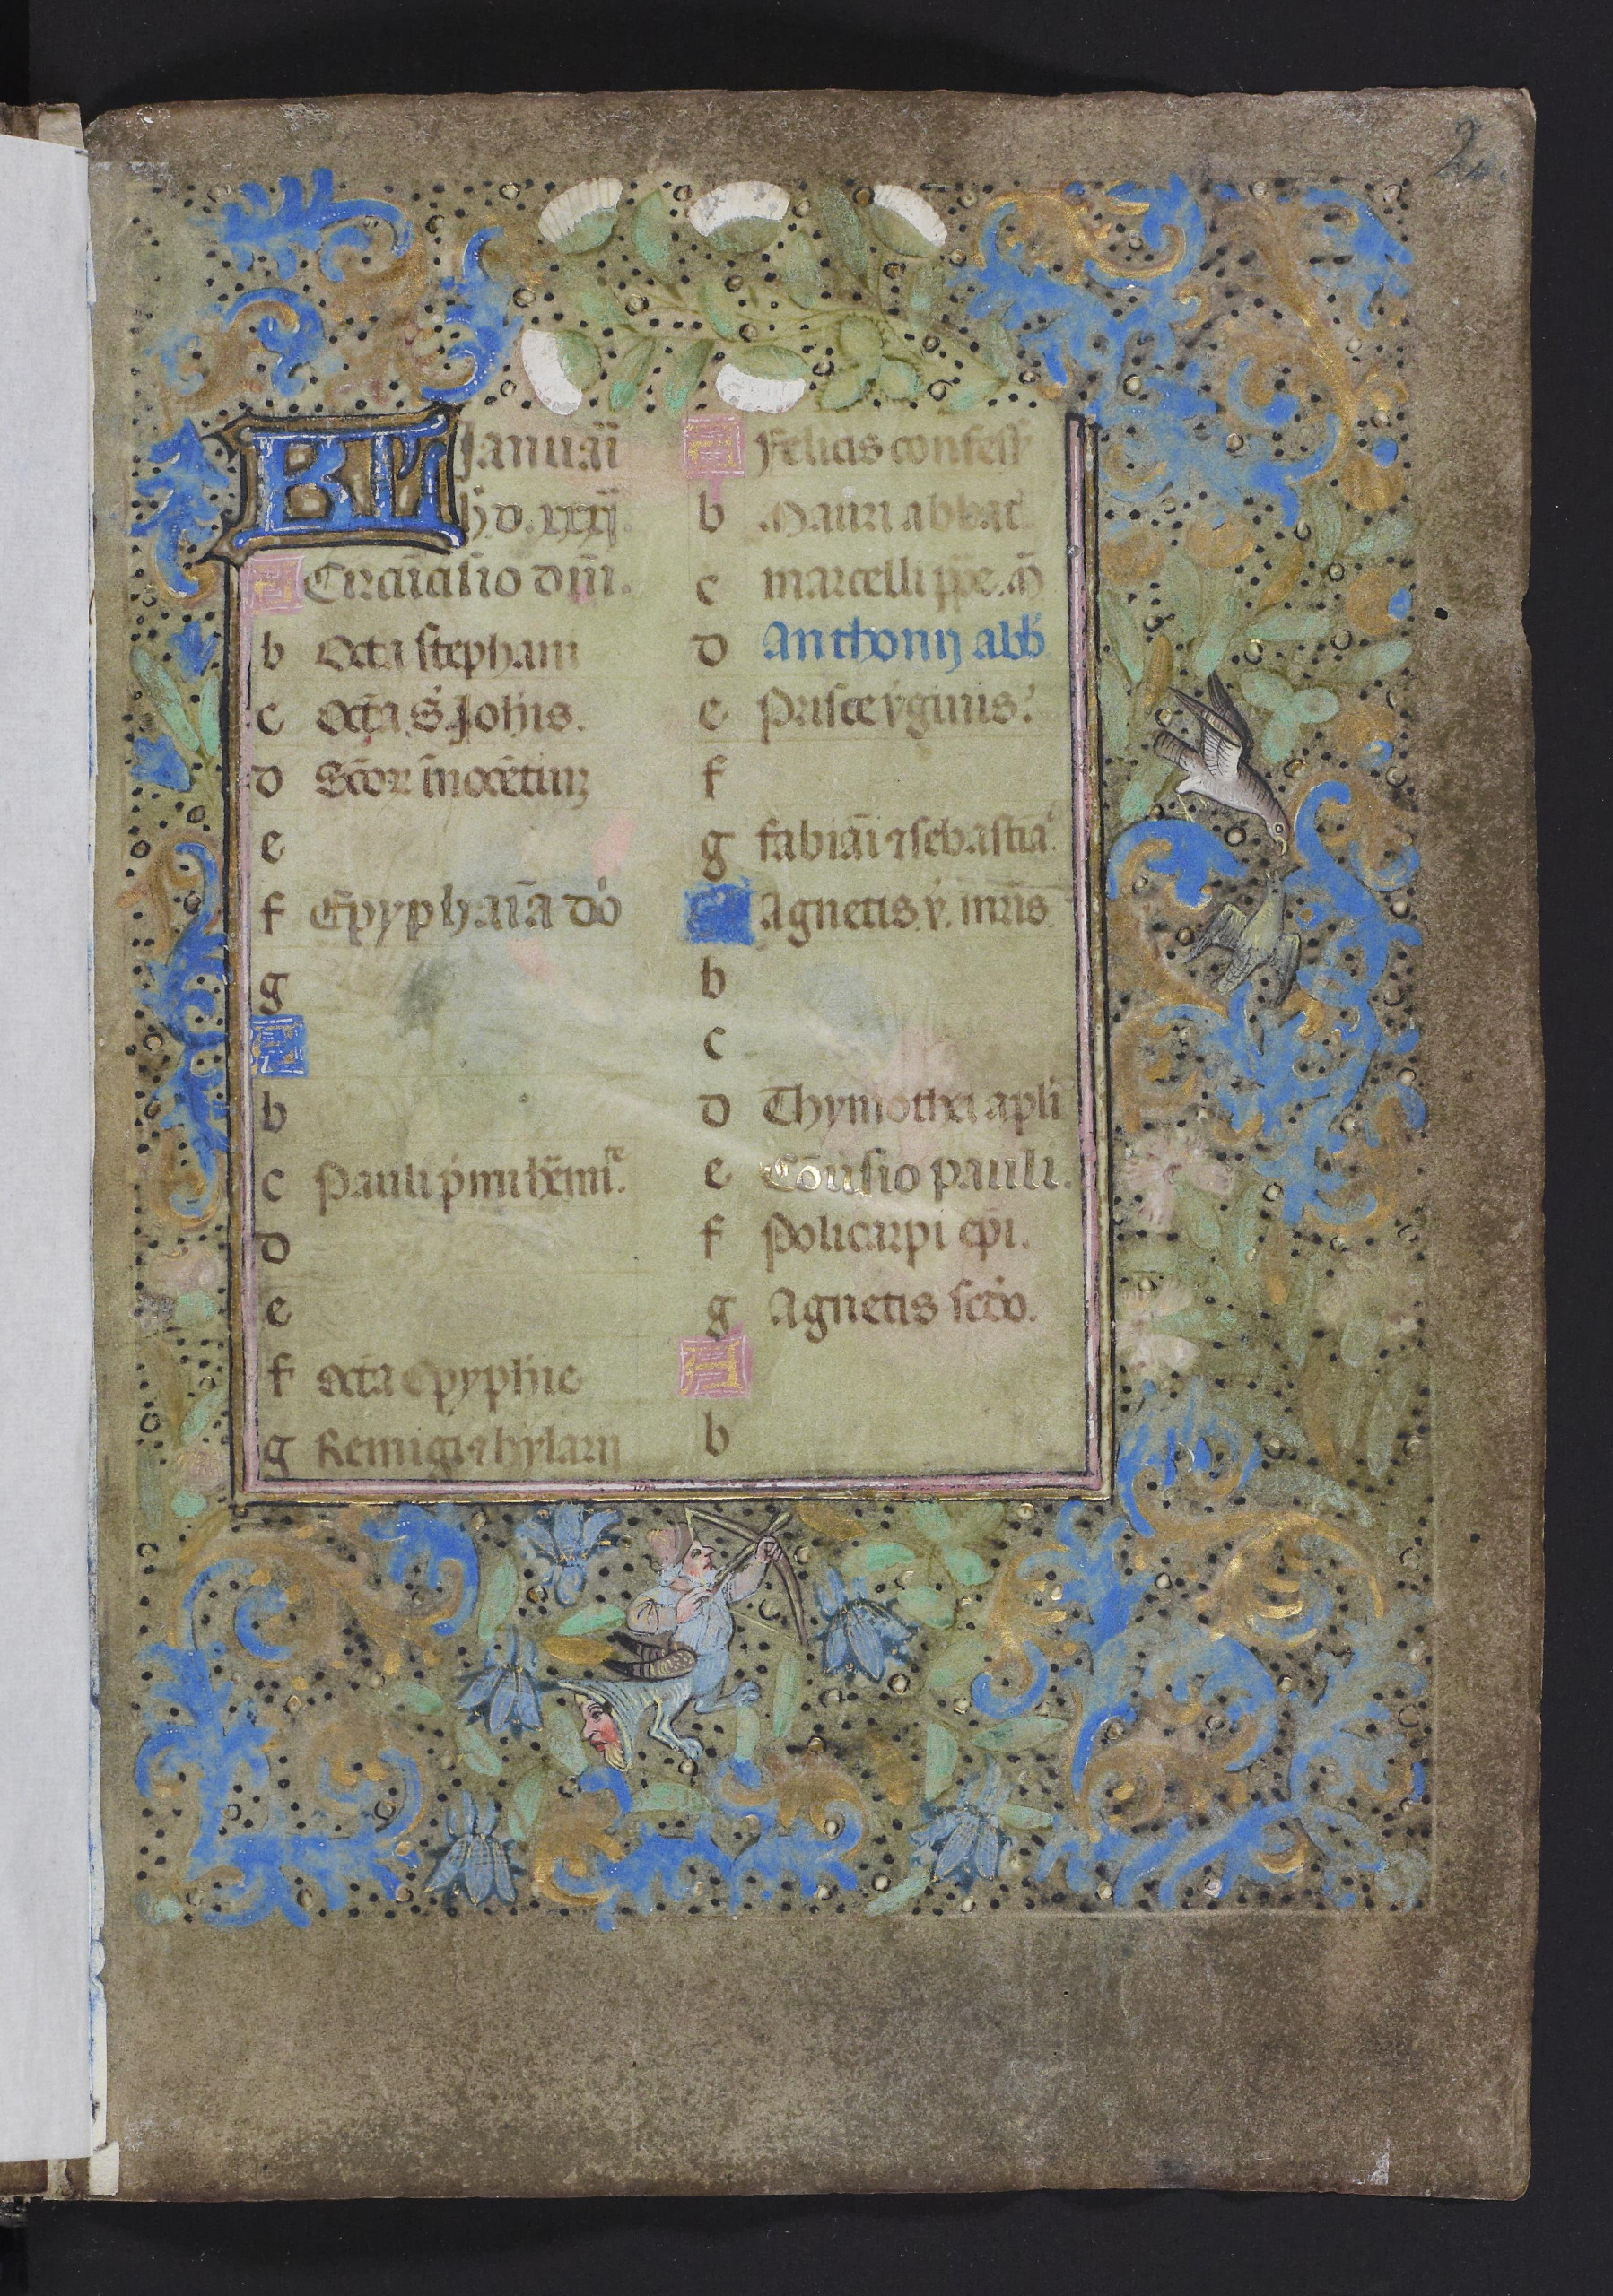 KL Januarii
hꝫ d. xxxi.
A Circūcisio dm̄i.
b Octā stephani
c Octā S Johīs.
d Scōꝝ inocētiū
e
f Epyphaīa dō
g
A
b
c Pauli pͥmi hēmiͭᵉ.
d
e
f Octā epyphīe
g Remigi ⁊ hylarij
A Felicis confess
b Mauri abbat
c marcelli pp̄e. m̄
d Anthonij abb̄
e Prisce v̓ginis.
f
g fabiāi ⁊ sebastiā.
A Agnetis v̓. mr̄is
b
c
d Thymothei apli
e Cōūsio pauli.
f Policarpi ep̄i.
g Agnetis secdō.
A
b